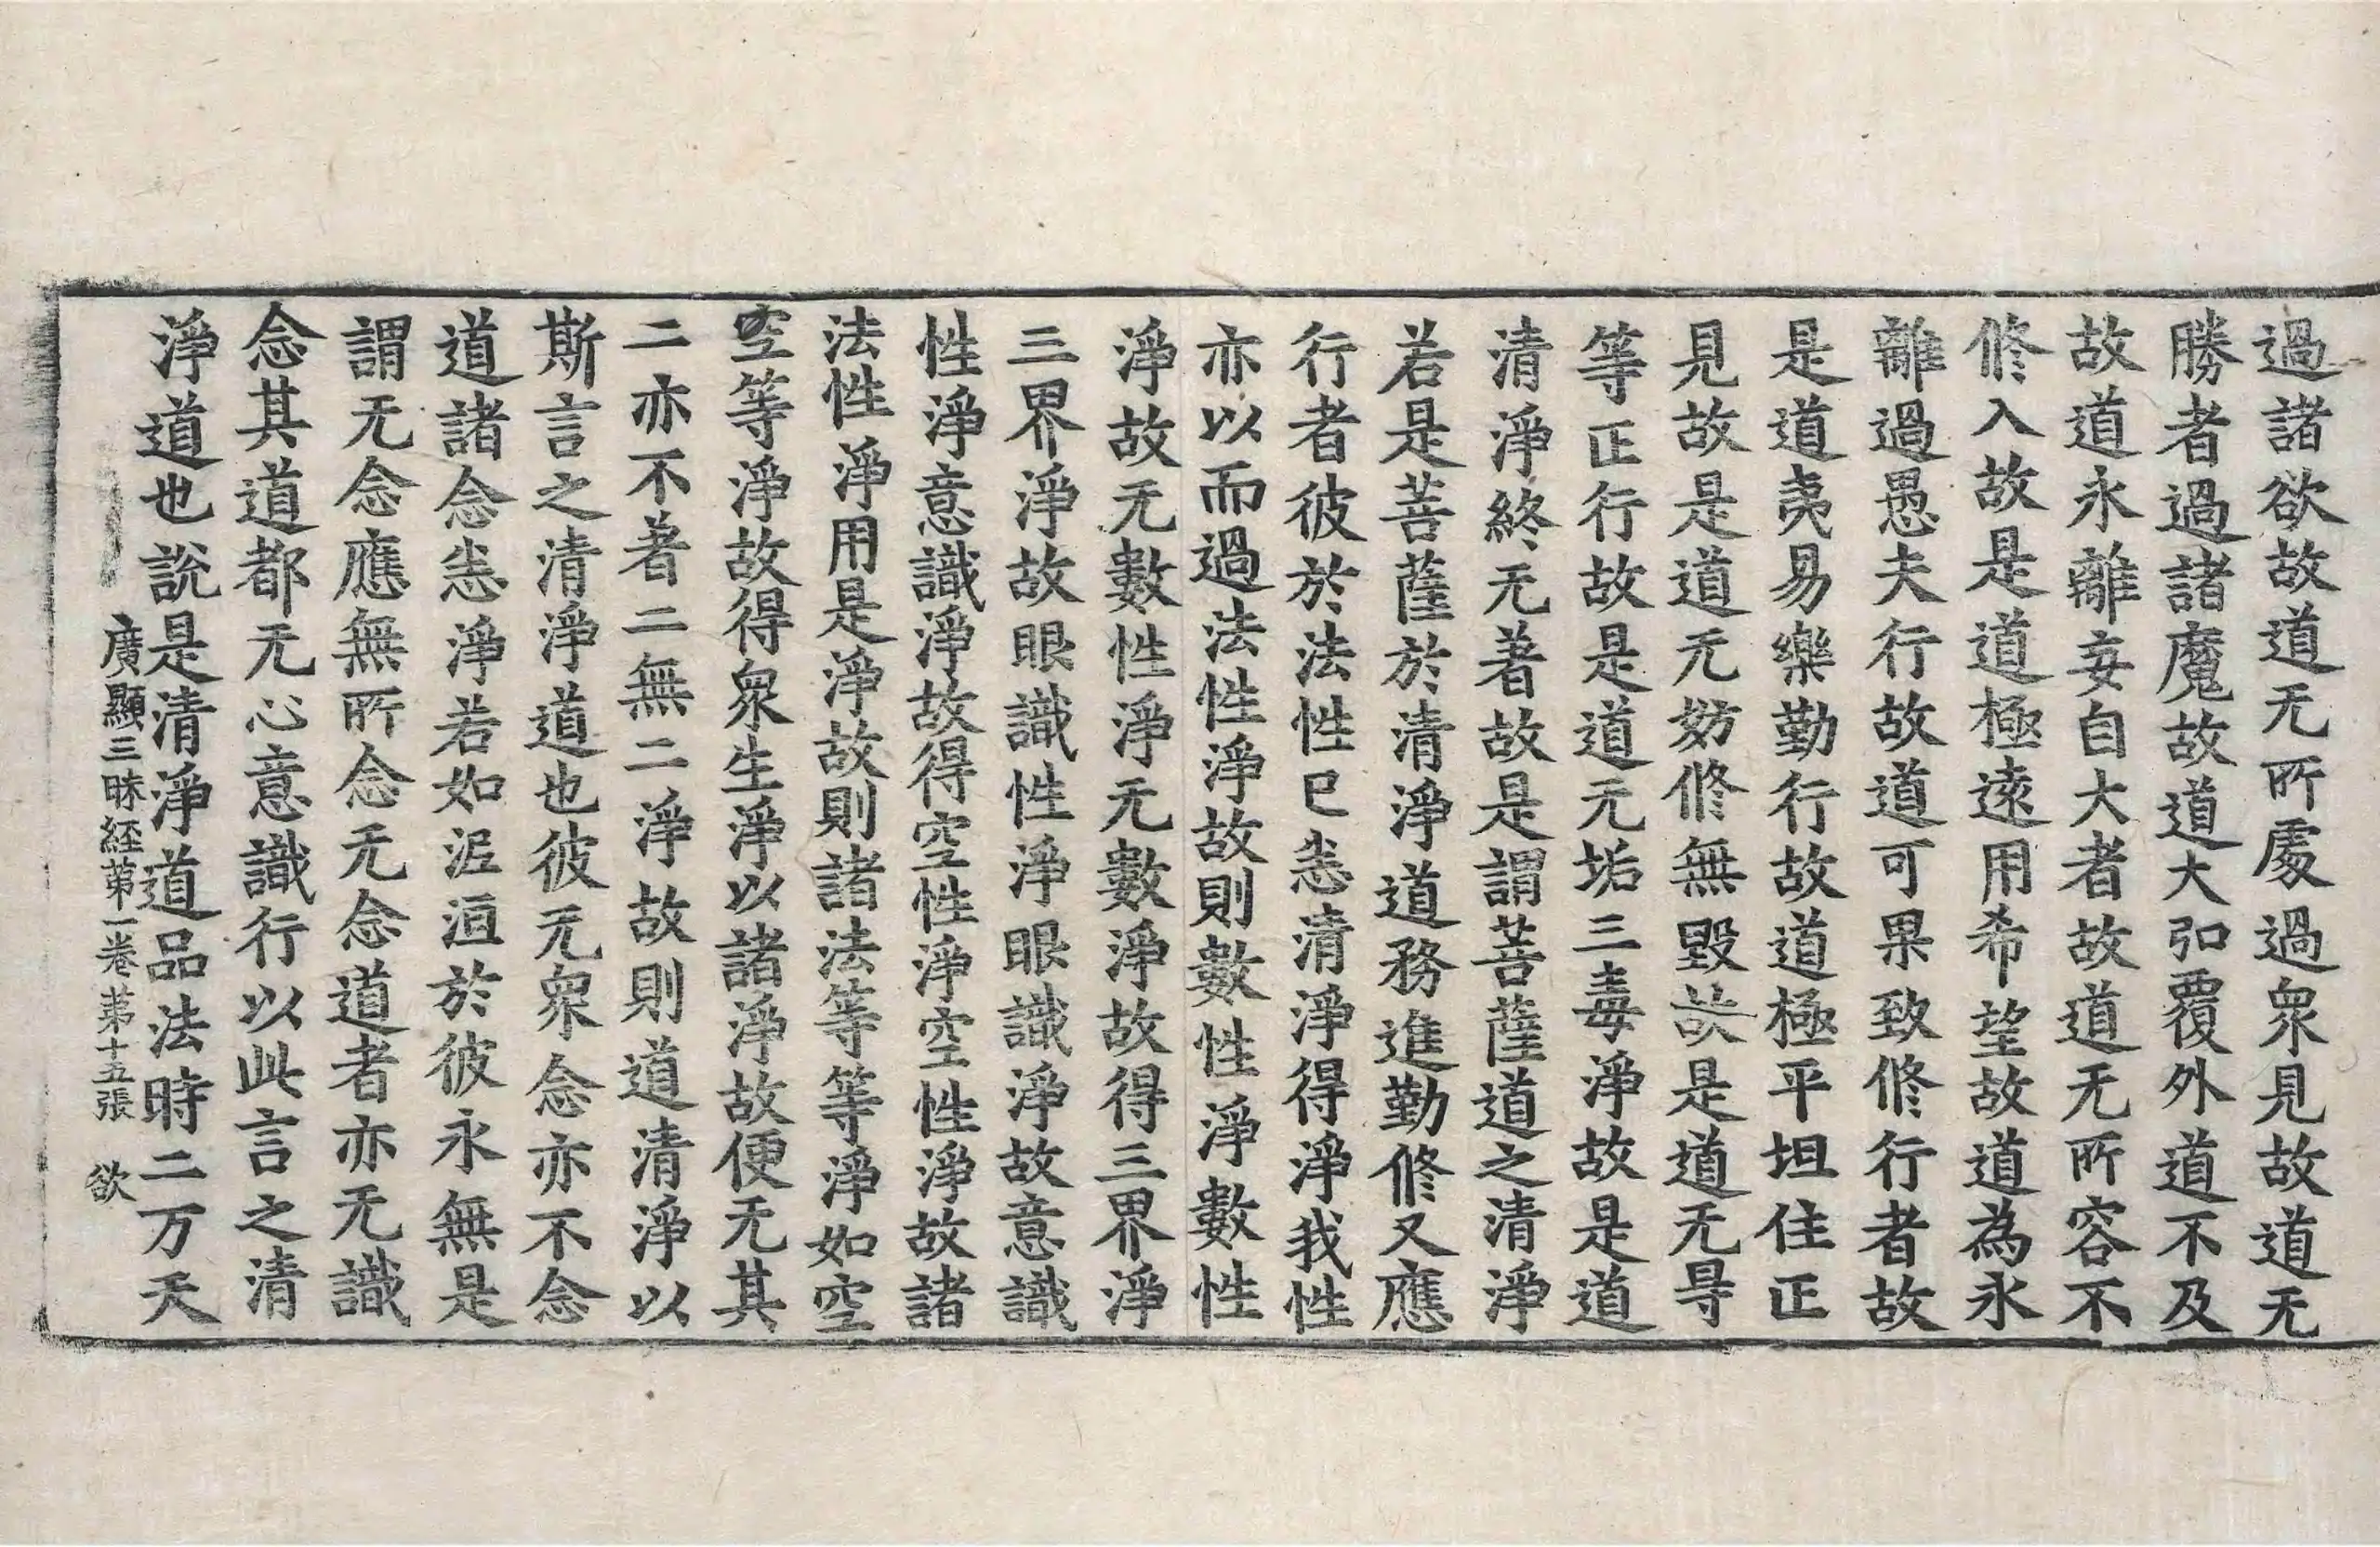 過諸欲故道无所處過衆見故道无
勝者過諸魔故道大弘覆外道不及
故道永離妄自大者故道无所容不
修入故是道極遠用希望故道為永
離過愚夫行故道可果致修行者故
是道夷易樂勤行故道極平坦住正
見故是道无妨修無毀欻是道无㝵
等正行故是道无垢三毒淨故是道
清淨終无著故是謂菩薩道之清淨
若是菩薩於清淨道務進勤修又應
行者彼於法性已悉清淨得淨我性
亦以而過法性淨故則數性淨數性
淨故无數性淨无數淨故得三界淨
三界淨故眼識性淨眼識淨故意識
性淨意識淨故得空性淨空性淨故諸
法性淨用是淨故則諸法等等淨如空
空等淨故得衆生淨以諸淨故便无其
二亦不著二無二淨故則道清淨以
斯言之清淨道也彼无衆念亦不念
道諸念悉淨若如泥洹於彼永無是
謂无念應無所念无念道者亦无識
念其道都无心意識行以此言之清
淨道也說是清淨道品法時二万天
廣顯三昧経第一卷 第十五張 欲